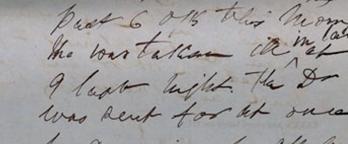 past 6 o'k this morn
He was taken ill in at
9 last night. The Dr
was sent for at once